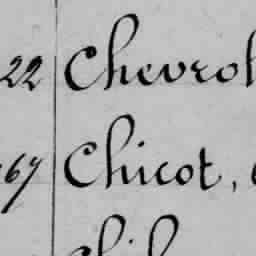 22 Chevrol
67 Chicot,